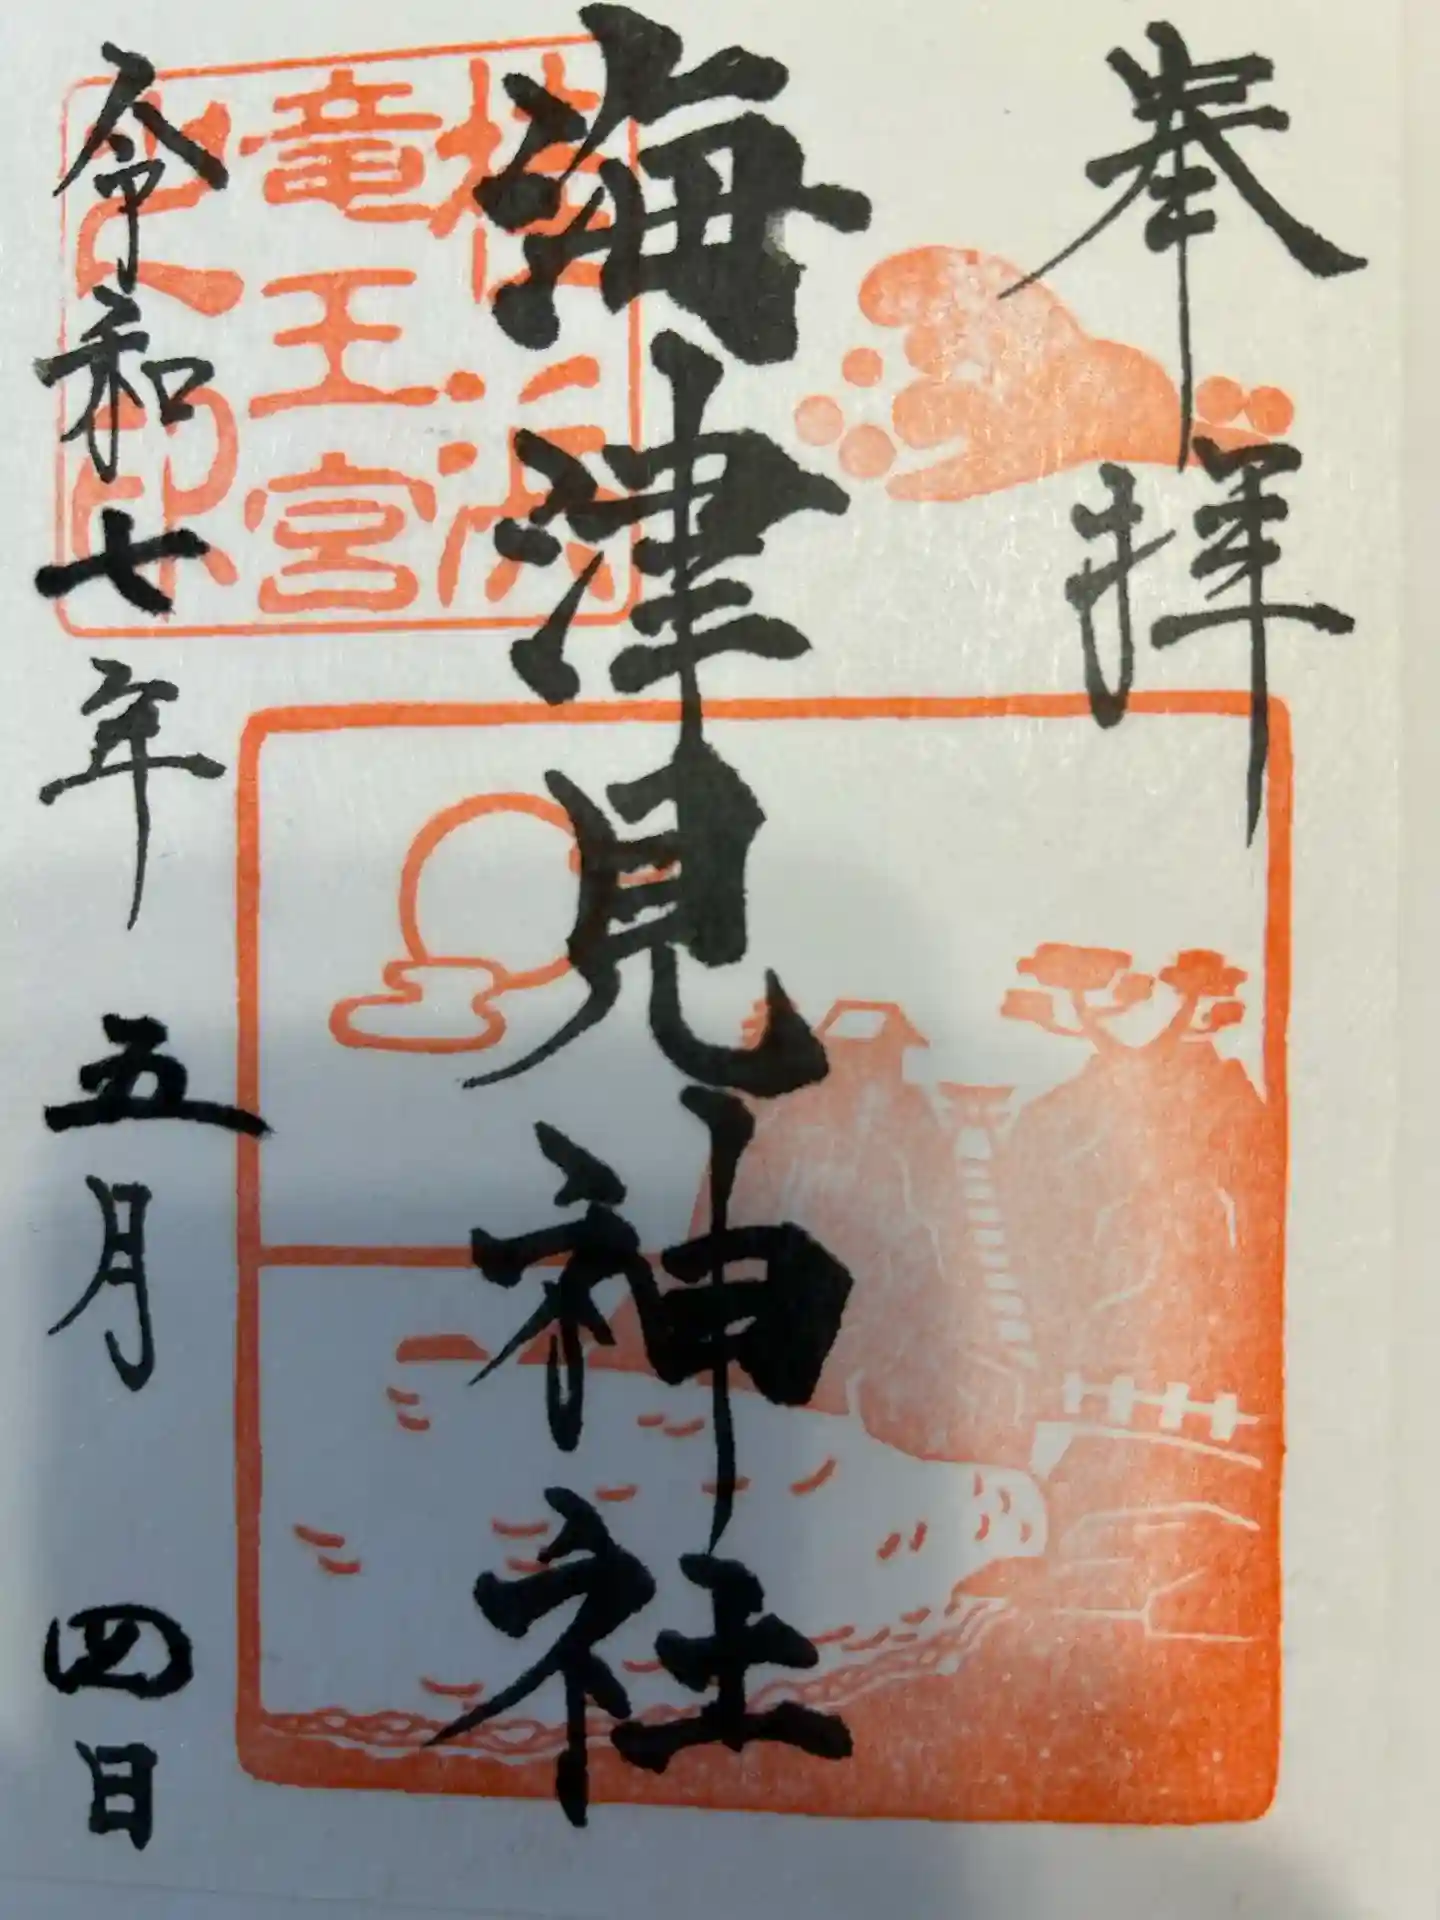 奉拝
海津見神社
桂浜
竜王宮
之印
令和七年五月四日